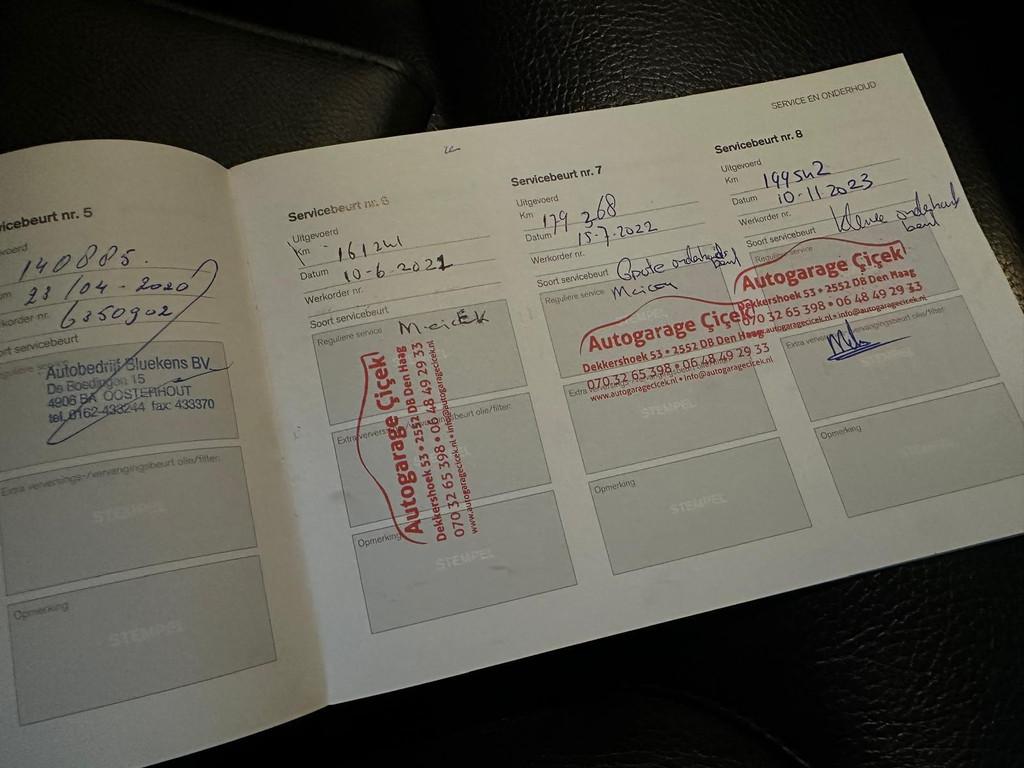 SERVICE EN ONDERHOUD
vicebeurt nr. 5
voerd
140885.
um 23/04-2020
korder nr. 6350902
ort servicebeurt
Autobedrijf Bluekens BV
De Boedingen 15
4906 BA OOSTERHOUT
tel. 0162-433244 fax: 433370
Extra verversings-/vervangingsbeurt olie/filter:
STEMPEL
Opmerking
STEMPEL
Servicebeurt nr. 6
Uitgevoerd
Km 161241
Datum 10-6-2021
Werkorder nr.
Soort servicebeurt
Reguliere service
Autogarage Çiçek
Dekkershoek 53 • 2552 DB Den Haag
070 32 65 398 • 06 48 49 29 33
www.autogaragecicek.nl • info@autogaragecicek.nl
Opmerking
STEMPEL
Servicebeurt nr. 7
Uitgevoerd
Km 179 368
Datum 15-7-2022
Werkorder nr.
Soort servicebeurt Grote onderhoud beurt
Reguliere service
Autogarage Çiçek
Dekkershoek 53 • 2552 DB Den Haag
070 32 65 398 • 06 48 49 29 33
www.autogaragecicek.nl • info@autogaragecicek.nl
STEMPEL
Opmerking
STEMPEL
Servicebeurt nr. 8
Uitgevoerd
Km 199542
Datum 10-11-2023
Werkorder nr.
Soort servicebeurt Kleine onderhoud beurt
Autogarage Çiçek
Dekkershoek 53 • 2552 DB Den Haag
070 32 65 398 • 06 48 49 29 33
www.autogaragecicek.nl • info@autogaragecicek.nl
Opmerking